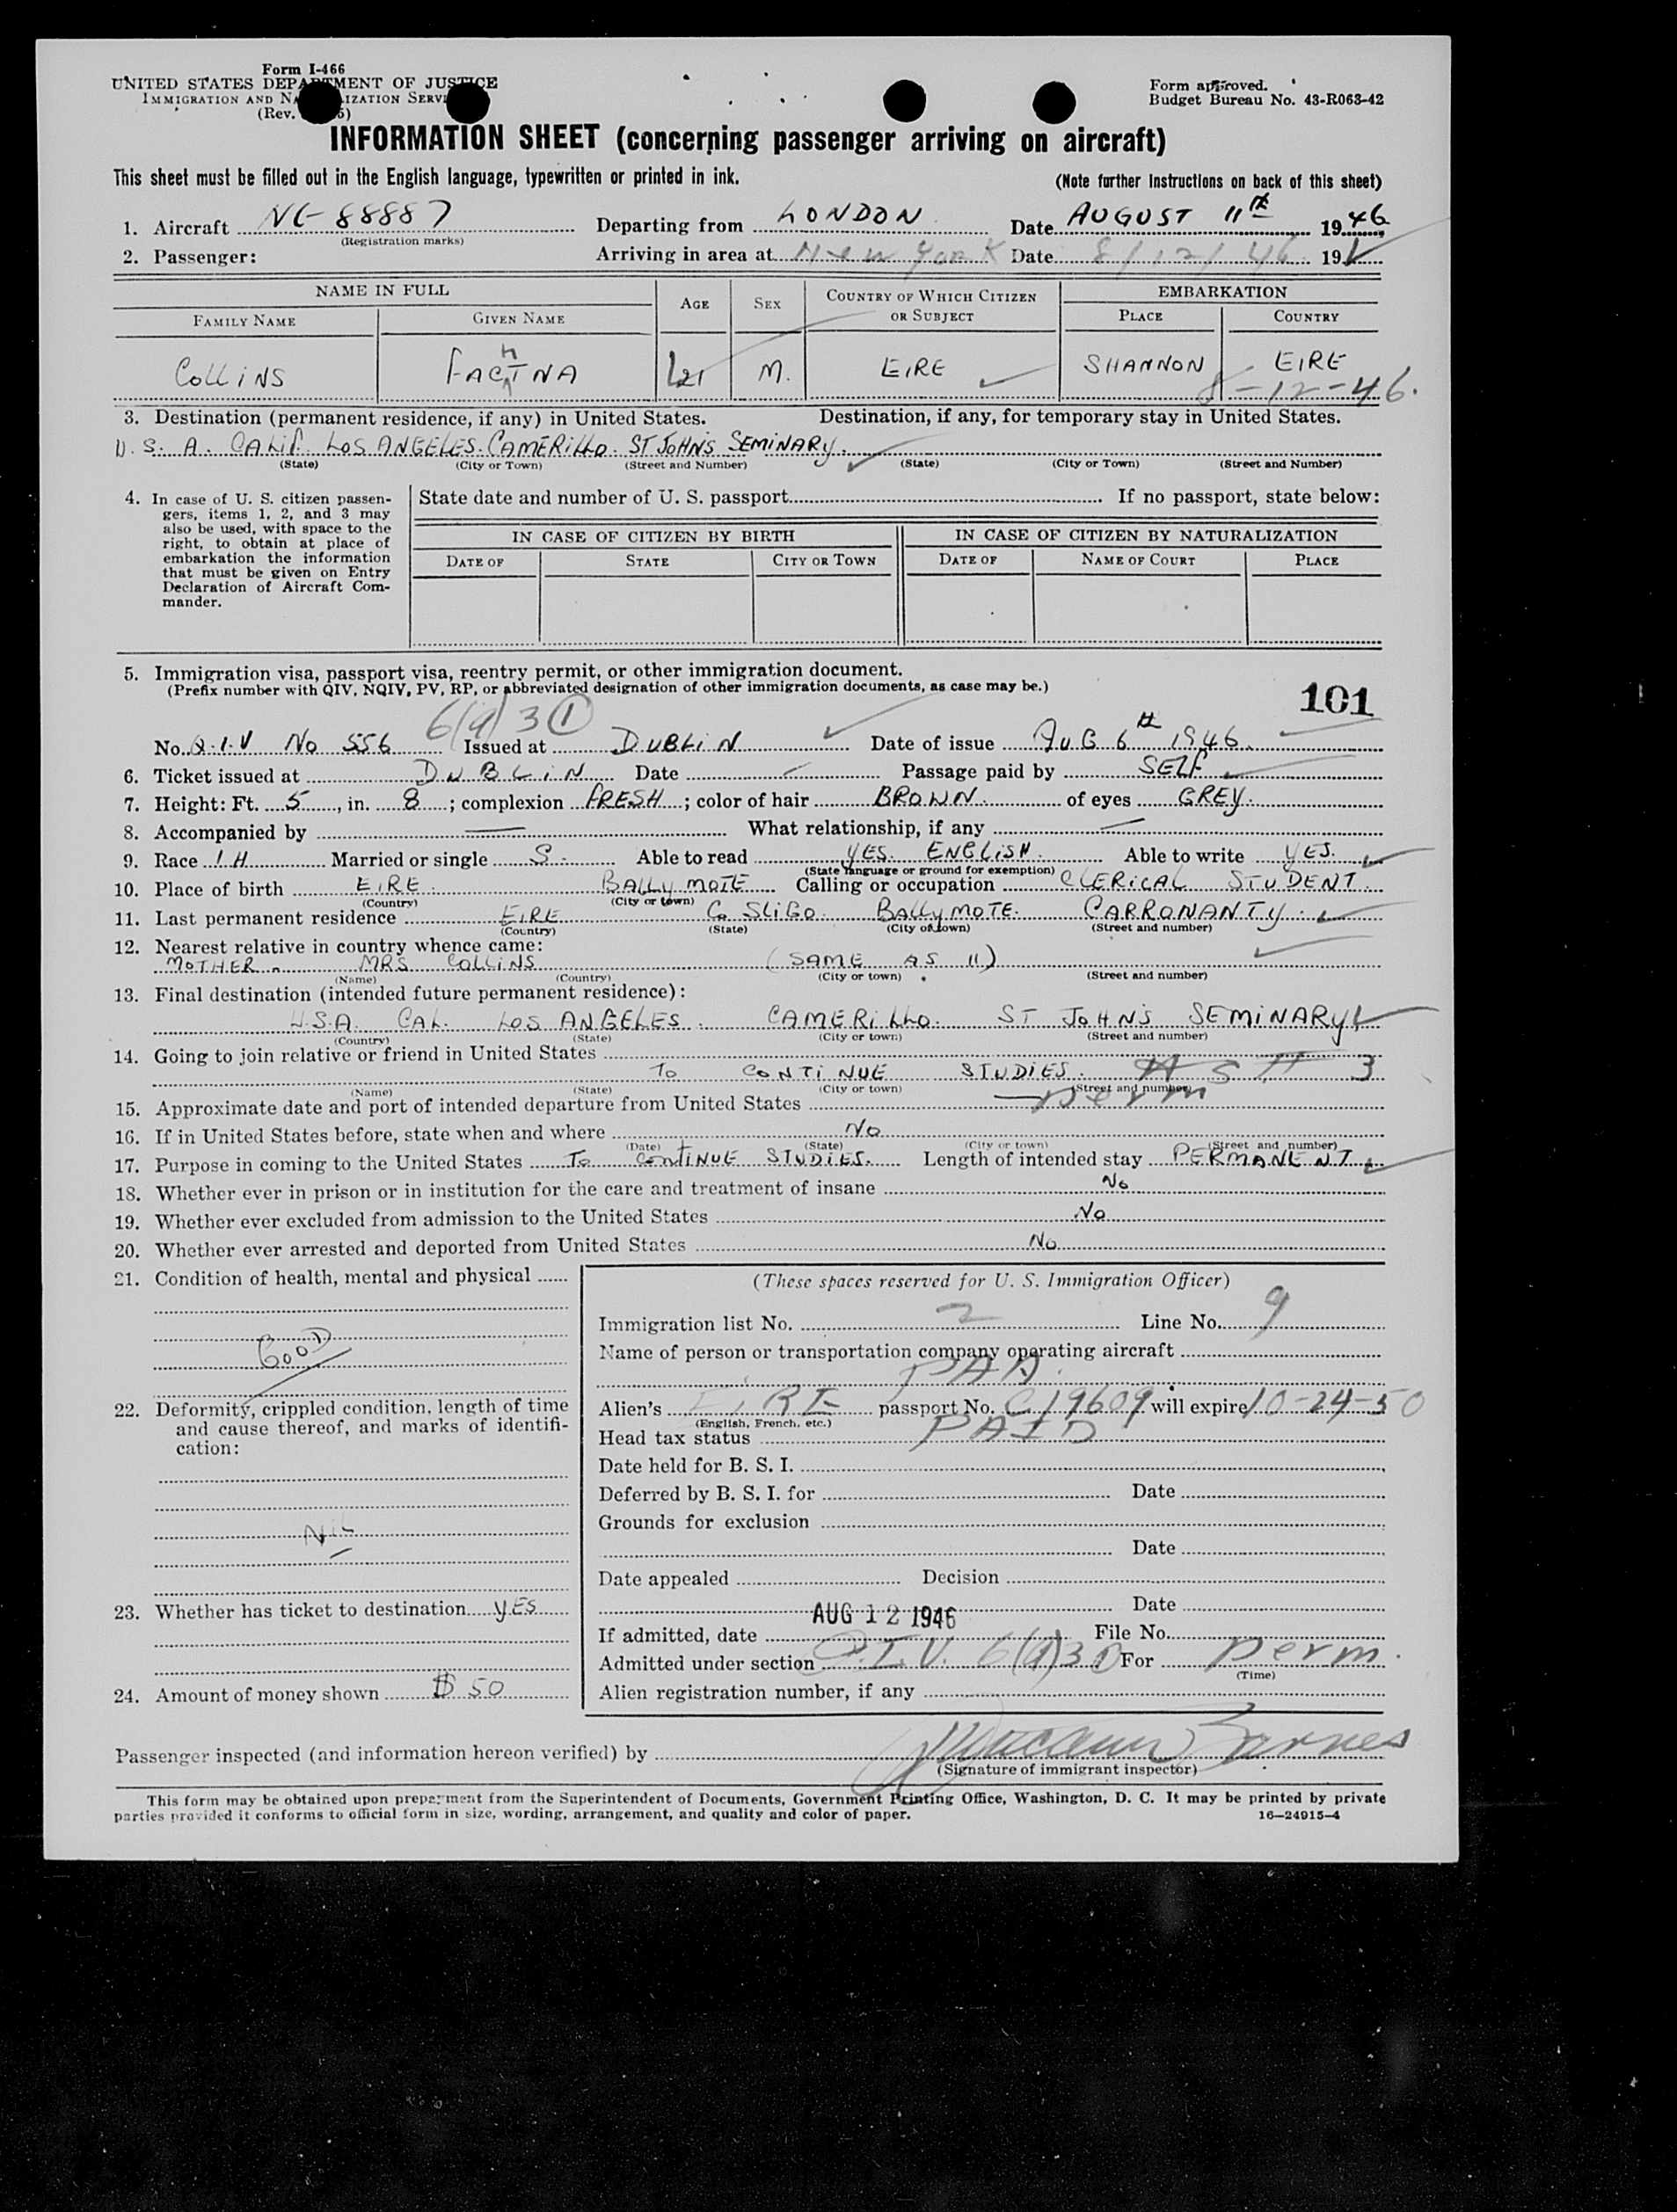 Form I-466
UNITED STATES DEPARTMENT OF JUSTICE
IMMIGRATION AND NATURALIZATION SERVICE
(Rev.
Form approved.
Budget Bureau No. 43-R063-42
INFORMATION SHEET (concerning passenger arriving on aircraft)
This sheet must be filled out in the English language, typewritten or printed in ink. (Note further Instructions on back of this sheet)
1. Aircraft NC-88887 Departing from LONDON Date AUGUST 11th 1946
(Registration marks)
2. Passenger: Arriving in area at New York Date 8/12/46 19
NAME IN FULL AGE SEX COUNTRY OF WHICH CITIZEN OR SUBJECT EMBARKATION
FAMILY NAME GIVEN NAME PLACE COUNTRY
COLLINS FACHTNA 21 M. EIRE SHANNON EIRE
8-12-46.
3. Destination (permanent residence, if any) in United States. Destination, if any, for temporary stay in United States.
U. S. A. CALIF. LOS ANGELES. CAMERILLO. ST JOHNS SEMINARY.
(State) (City or Town) (Street and Number) (State) (City or Town) (Street and Number)
4. In case of U. S. citizen passengers, items 1, 2, and 3 may also be used, with space to the right, to obtain at place of embarkation the information that must be given on Entry Declaration of Aircraft Commander.
State date and number of U. S. passport If no passport, state below:
IN CASE OF CITIZEN BY BIRTH IN CASE OF CITIZEN BY NATURALIZATION
DATE OF STATE CITY OR TOWN DATE OF NAME OF COURT PLACE
5. Immigration visa, passport visa, reentry permit, or other immigration document.
(Prefix number with QIV, NQIV, PV, RP, or abbreviated designation of other immigration documents, as case may be.)
101
6(a)3(1)
No. Q.I.V No 556 Issued at DUBLIN Date of issue AUG 6th 1946
6. Ticket issued at DUBLIN Date Passage paid by SELF
7. Height: Ft. 5, in. 8; complexion FRESH; color of hair BROWN. of eyes GREY.
8. Accompanied by — What relationship, if any —
9. Race IH Married or single S. Able to read YES. ENGLISH. Able to write YES.
(State language or ground for exemption)
10. Place of birth EIRE. BALLYMOTE Calling or occupation CLERICAL STUDENT.
(Country) (City or town)
11. Last permanent residence EIRE Co SLIGO. BALLYMOTE. CARRONANTY.
(Country) (State) (City or town) (Street and number)
12. Nearest relative in country whence came:
MOTHER. MRS COLLINS (SAME AS 11)
(Name) (Country) (City or town) (Street and number)
13. Final destination (intended future permanent residence):
U.S.A. CAL. LOS ANGELES. CAMERILLO. ST JOHNS SEMINARY
(Country) (State) (City or town) (Street and number)
14. Going to join relative or friend in United States
TO CONTINUE STUDIES. 3
(Name) (State) (City or town) (Street and number)
15. Approximate date and port of intended departure from United States — perm
16. If in United States before, state when and where No
(Date) (State) (City or town) (Street and number)
17. Purpose in coming to the United States TO CONTINUE STUDIES. Length of intended stay PERMANENT.
18. Whether ever in prison or in institution for the care and treatment of insane No
19. Whether ever excluded from admission to the United States No
20. Whether ever arrested and deported from United States No
21. Condition of health, mental and physical
GOOD
22. Deformity, crippled condition, length of time and cause thereof, and marks of identification:
NIL
23. Whether has ticket to destination YES
24. Amount of money shown $ 50
(These spaces reserved for U. S. Immigration Officer)
Immigration list No. 2 Line No. 9
Name of person or transportation company operating aircraft
PAA
Alien's EIRE passport No. C19609 will expire 10-24-50
(English, French, etc.)
Head tax status PAID
Date held for B. S. I.
Deferred by B. S. I. for Date
Grounds for exclusion
Date
Date appealed Decision
Date
If admitted, date AUG 12 1946 File No.
Admitted under section Q.I.V. 6(a)3(1) For perm.
(Time)
Alien registration number, if any
Passenger inspected (and information hereon verified) by Barnes
(Signature of immigrant inspector)
This form may be obtained upon prepayment from the Superintendent of Documents, Government Printing Office, Washington, D. C. It may be printed by private
parties provided it conforms to official form in size, wording, arrangement, and quality and color of paper. 16—24915-4